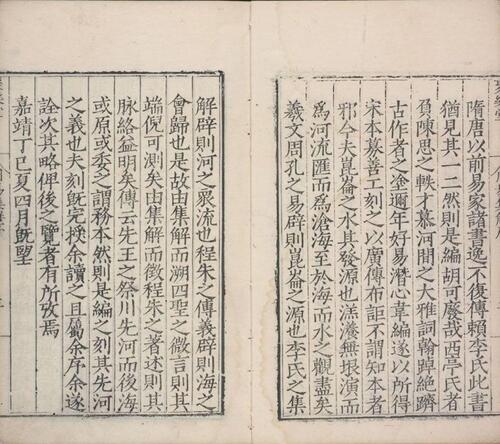 隋唐以前易家諸書逸不復傳賴李氏此書
猶見其一二然則是編胡可廢哉西亭氏者
負陳思之軼才慕河間之大雅詞翰踔絶躋
古作者之塗邇年好易潛心韋編遂以所得
宋本募善工刻之以廣傳布詎不謂知本者
邪今夫崑崙之水其發源也渾灝無垠演而
爲河流匯而爲滄海至於海而水之觀盡矣
羲文周孔之易辟則崑崙之源也李氏之集
解辟則河之眾流也程朱之傳義辟則海之
會歸也是故由集解而溯四聖之微言則其
端倪可測矣由集解而徵程朱之著述則其
脉絡益明矣傳云先王之祭川先河而後海
或原或委之謂務本然則是編之刻其先河
之義也夫刻旣完授余讀之且屬余序余遂
詮次其略俾後之覽者有所攷焉
嘉靖丁巳夏四月旣望